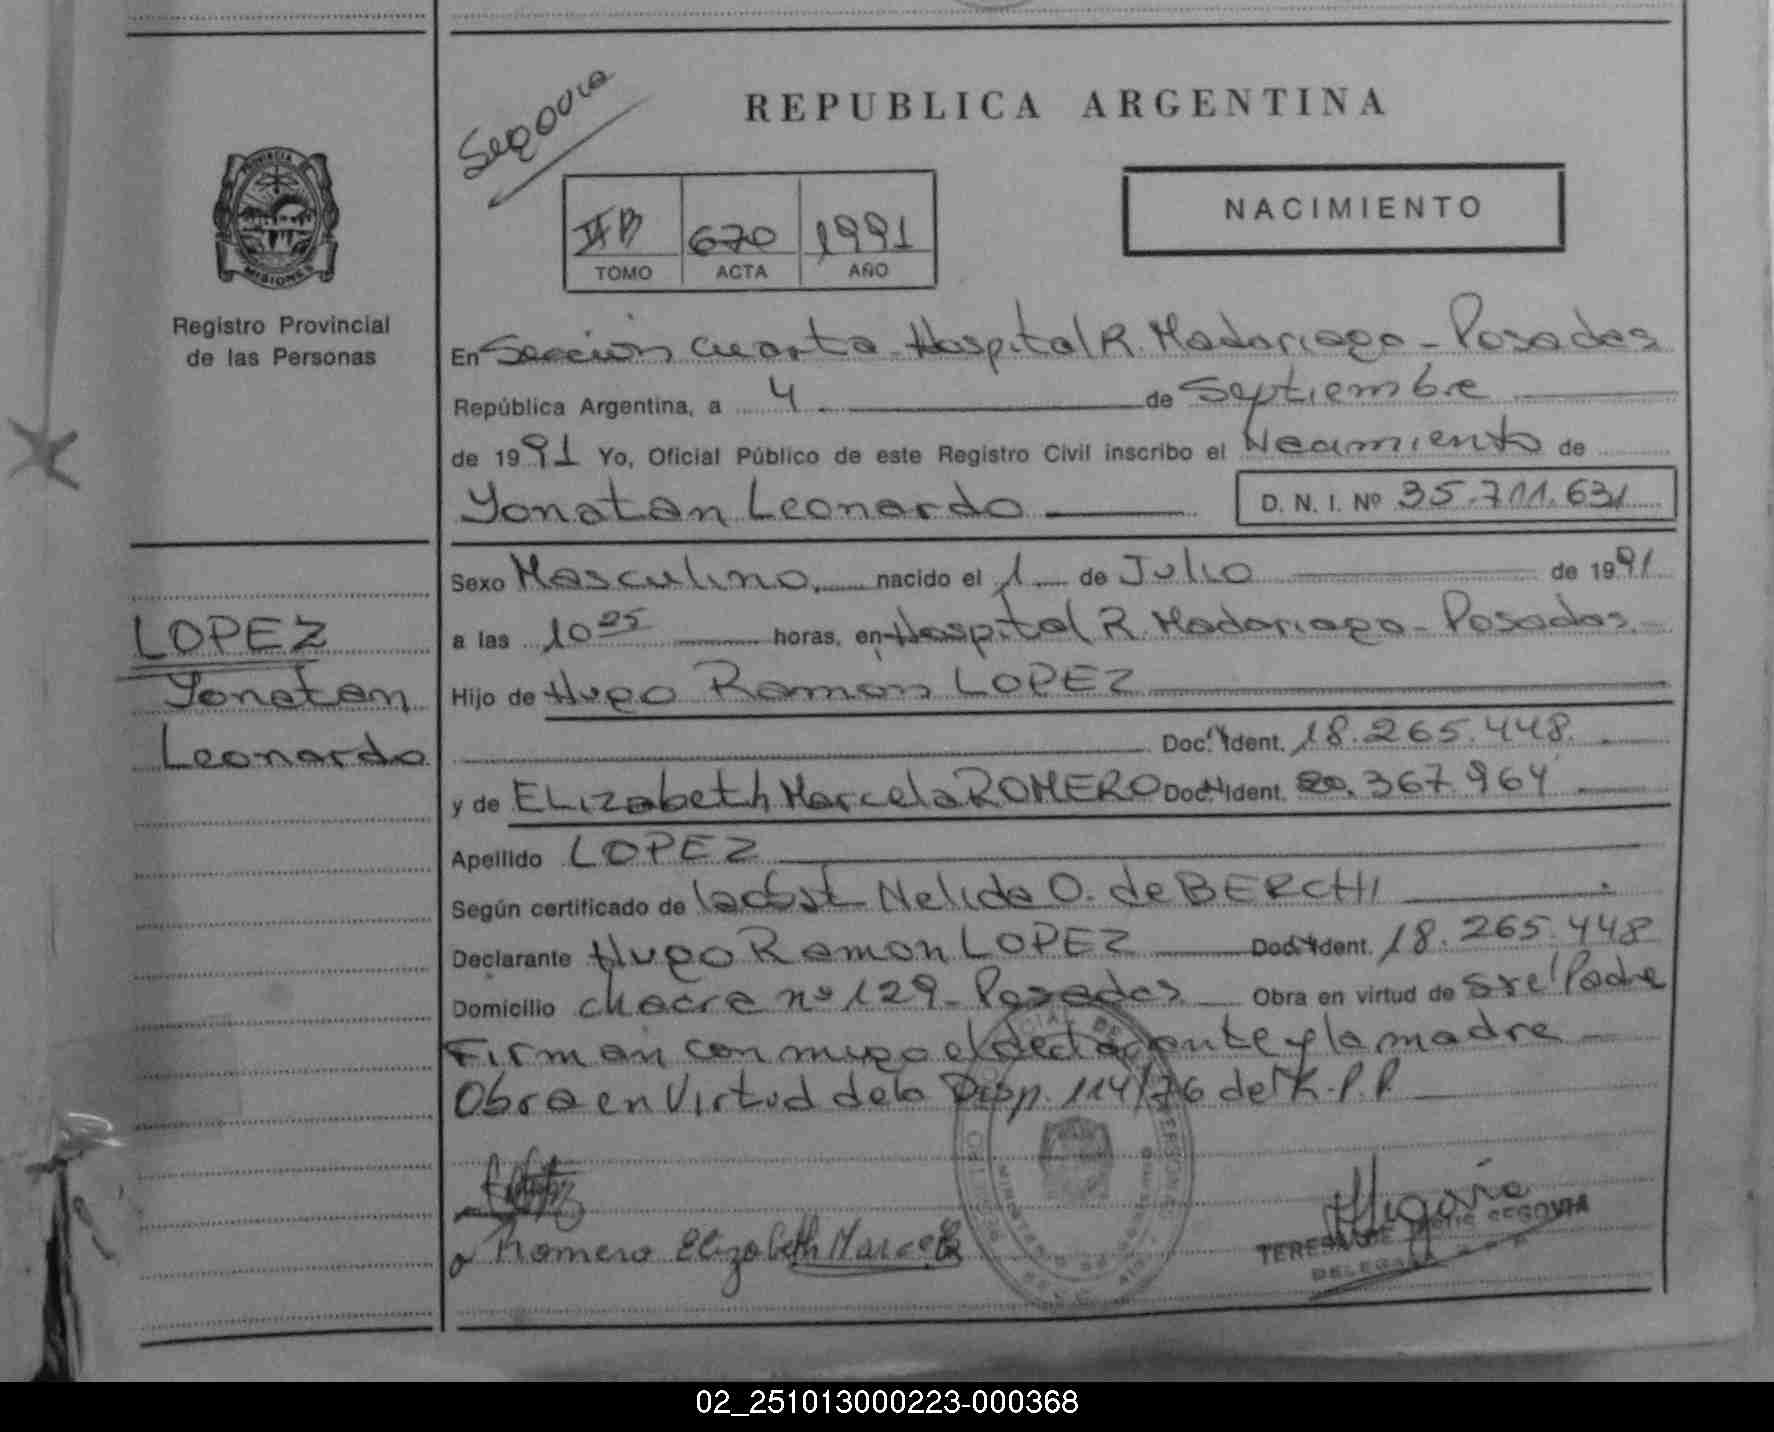 Segovia
REPUBLICA ARGENTINA
PROVINCIA
MISIONES
Registro Provincial
de las Personas
IIB 670 1991
TOMO ACTA AÑO
NACIMIENTO
En Sección cuarta Hospital R. Madariaga - Posadas
República Argentina, a 4 de Septiembre
de 1991 Yo, Oficial Público de este Registro Civil inscribo el Nacimiento de
Yonatan Leonardo D. N. I. Nº 35.711.631
Sexo Masculino nacido el 1 de Julio de 1991
a las 10 25 horas, en Hospital R. Madariaga - Posadas
Hijo de Hugo Ramon LOPEZ
Doc. Ident. 18.265.448
y de ELizabeth Marcela ROMERO Doc. Ident. 20.367.964
Apellido LOPEZ
Según certificado de la obst Nelida O. de BERCHI
Declarante Hugo Ramon LOPEZ Doc. Ident. 18.265.448
Domicilio chacra nº 129 - Posadas Obra en virtud de Padre
Firman con migo el declarante y la madre
Obra en Virtud de la Disp. 114/76 del R.P.P
LOPEZ
Yonatan
Leonardo
Romero Elizabeth Marcela
TERESA DE JESUS SEGOVIA
DELEGADA
02_251013000223-000368